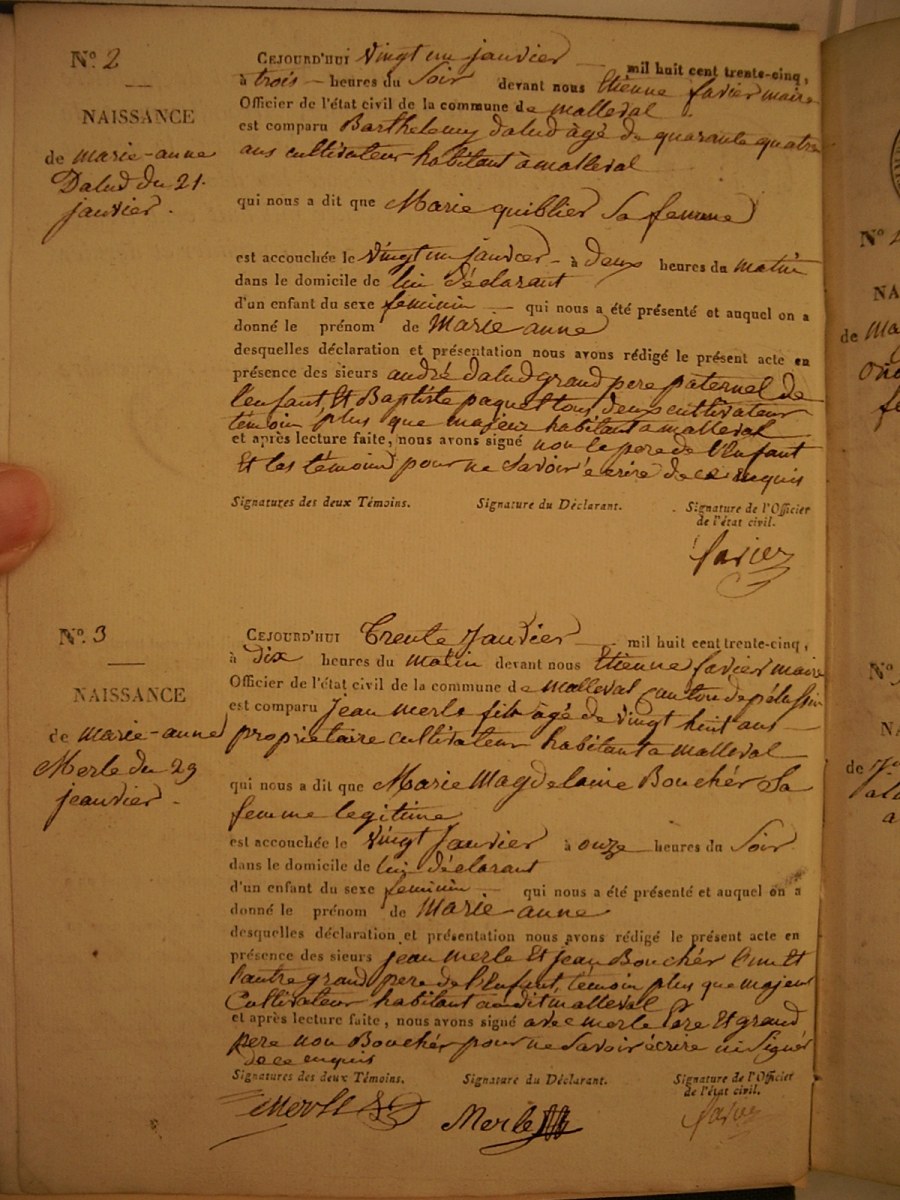 N.º 2
NAISSANCE
de marie-anne
Dalud du 21.
janvier.
CEJOURD'HUI vingt un janvier — mil huit cent trente-cinq,
à trois — heures du Soir devant nous Etienne favier maire
Officier de l'état civil de la commune de malleval
est comparu Barthelemy dalud âgé de quarante quatre
ans cultivateur habitant à malleval
qui nous a dit que Marie quiblier Sa femme
est accouchée le vingt un janvier - à deux heures du matin
dans le domicile de lui déclarant
d'un enfant du sexe feminin — qui nous a été présenté et auquel on a
donné le prénom de Marie anne
desquelles déclaration et présentation nous avons rédigé le présent acte en
présence des sieurs andré dalud grand pere paternel de
l'enfant Et Baptiste paquet tous deux cultivateur
temoin plus que majeur habitant a malleval
et après lecture faite, nous avons signé non le pere de l'Enfant
Et les témoins pour ne Savoir écrire de ce enquis
Signatures des deux Témoins. Signature du Déclarant. Signature de l'Officier
de l'état civil.
favier
N.º 3
NAISSANCE
de marie-anne
Merle du 29
jeanvier.
CEJOURD'HUI Trente Janvier — mil huit cent trente-cinq,
à Dix heures du matin devant nous Etienne favier maire
Officier de l'état civil de la commune de malleval canton de pélussin
est comparu Jean merle fils âgé de vingt huit ans —
propriétaire cultivateur habitant a malleval
qui nous a dit que Marie Magdelaine Bouchér Sa
femme legitime
est accouchée le vingt Janvier à onze heures du Soir
dans le domicile de lui déclarant
d'un enfant du sexe feminin — qui nous a été présenté et auquel on a
donné le prénom de Marie-anne
desquelles déclaration et présentation nous avons rédigé le présent acte en
présence des sieurs jean merle Et jean Bouchér l'un Et
l'autre grand pere de l'Enfant, témoin plus que majeur
Cultivateur habitant audit malleval
et après lecture faite, nous avons signé avec merle pere Et grand
pere non Bouchér pour ne Savoir écrire ni Signér
de ce enquis
Signatures des deux Témoins. Signature du Déclarant. Signature de l'Officier
de l'état civil.
Merle Merle favier
Nº
NA
de
Nº
NA
de